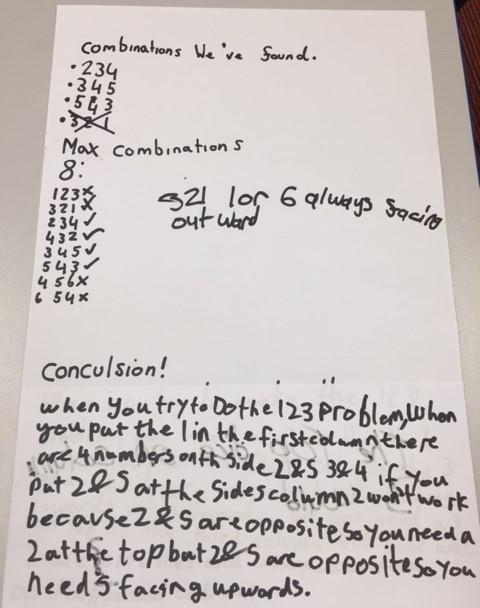 Combinations We've found.
• 234
• 345
• 543
• 321
Max Combinations
8:
123×
321×
234✓
432✓
345✓
543✓
456×
654×
321 1or 6 always facing
outward
Conculsion!
when you try to Do the 123 Problem, When
you put the 1 in the first column there
are 4 numbers on th side 2&5 3&4 if you
put 2&5 at the sides column 2 won't work
because 2&5 are opposite so you need a
2 at the top but 2&5 are opposite so you
need 5 facing upwards.